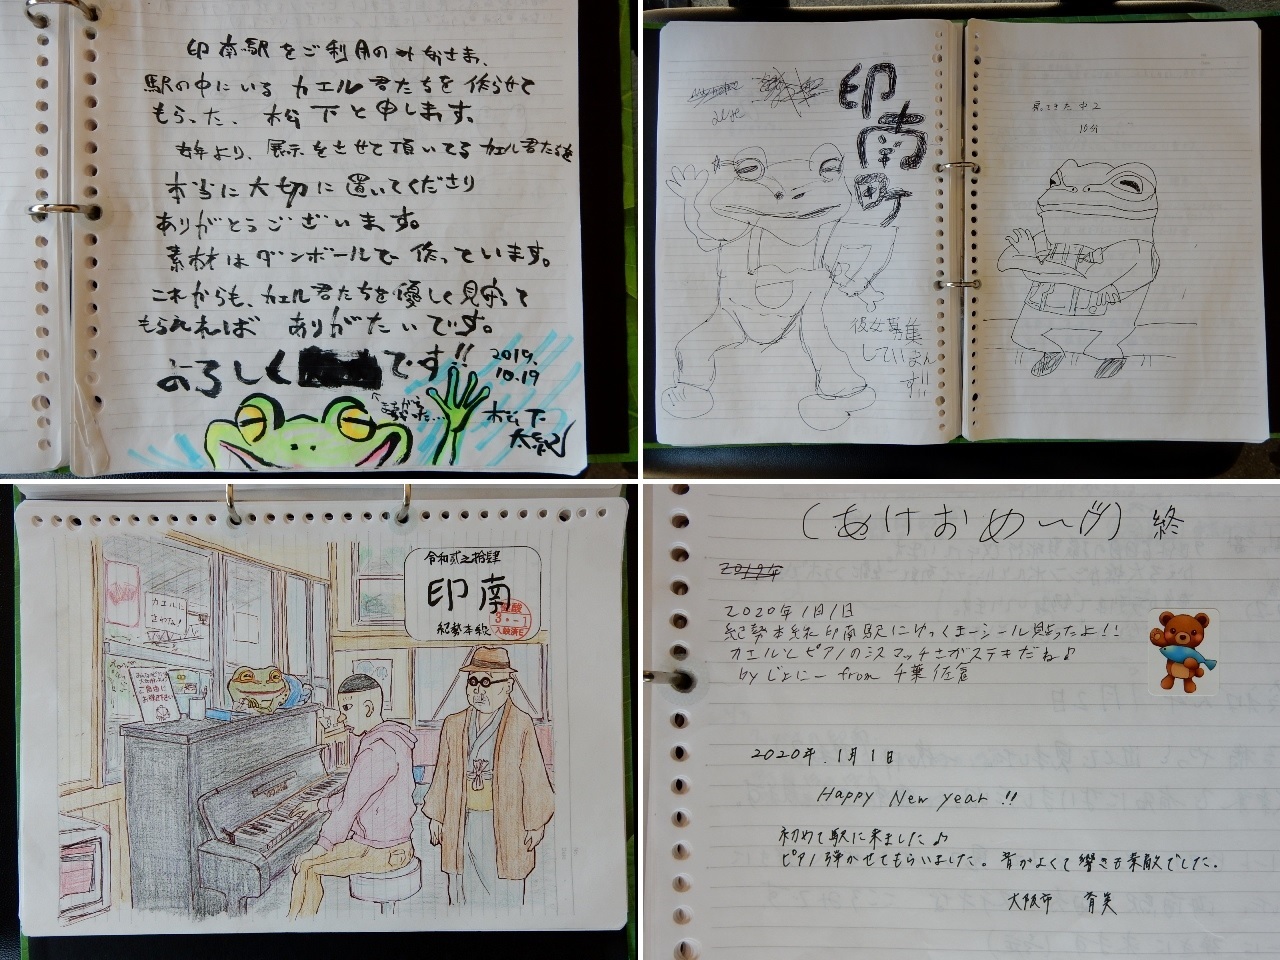 印南駅をご利用のみなさま、
駅の中にいる カエル君たちを 作らせて
もらった、松下と申します。
昨年より、展示をさせて頂いてる カエル君たちを
本当に大切に置いてくださり
ありがとうございます。
素材はダンボールで作っています。
これからも、カエル君たちを優しく見守って
もらえれば ありがたいです。
よろしく です!!
2019.
10.19
松下
印南町
彼女募集
していません
す!!
中2
令和弐之拾肆
印南
紀勢本線
カエルに
さわるな!
ご自由に
(あけおめ〜グ) 終
2019年
2020年1月1日
紀勢本線印南駅にゆっくまーシール貼ったよ!!
カエルとピアノのミスマッチさがステキだね♪
by じょにー from 千葉 佐倉
2020年.1月1日
Happy New year !!
初めて駅に来ました♪
ピアノ弾かせてもらいました。音がよくて響きも素敵でした。
大阪市 育美